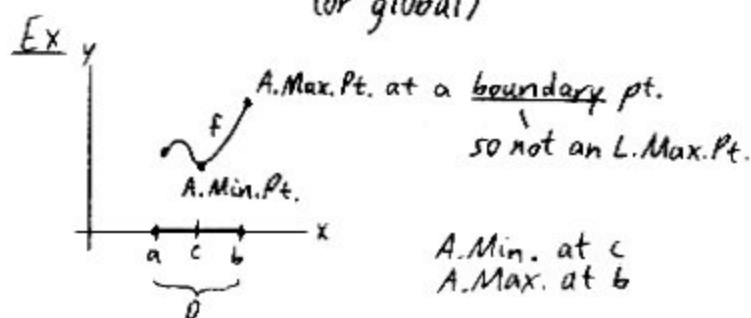 (or global)
Ex
y
A.Max.Pt. at a boundary pt.
f
so not an L.Max.Pt.
A.Min.Pt.
x
a c b
A.Min. at c
A.Max. at b
D